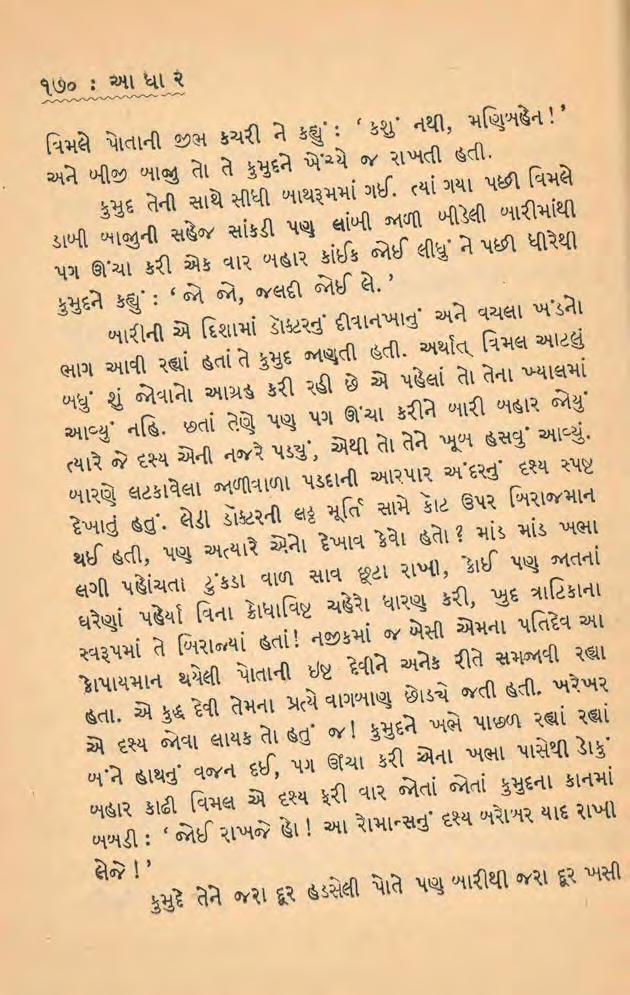 ૧૭૦ : આ ધા ર
વિમલે પોતાની જીભ કચરી ને કહ્યું : ‘ કશું નથી, મણિબહેન ! ’
અને બીજી બાજુ તો તે કુમુદને ખેંચ્યે જ રાખતી હતી.
કુમુદ તેની સાથે સીધી બાથરૂમમાં ગઈ. ત્યાં ગયા પછી વિમલે
ડાબી બાજુની સહેજ સાંકડી પણ લાંબી જાળી બીડેલી બારીમાંથી
પગ ઊંચા કરી એક વાર બહાર કાંઈક જોઈ લીધું ને પછી ધીરેથી
કુમુદને કહ્યું : ‘ જો જો, જલદી જોઈ લે. ’
બારીની એ દિશામાં ડૉક્ટરનું દીવાનખાનું અને વચલા ખંડનો
ભાગ આવી રહ્યાં હતાં તે કુમુદ જાણતી હતી. અર્થાત્ વિમલ આટલું
બધું શું જોવાનો આગ્રહ કરી રહી છે એ પહેલાં તો તેના ખ્યાલમાં
આવ્યું નહિ. છતાં તેણે પણ પગ ઊંચા કરીને બારી બહાર જોયું
ત્યારે જે દૃશ્ય એની નજરે પડ્યું, એથી તો તેને ખૂબ હસવું આવ્યું.
બારણે લટકાવેલા જાળીવાળા પડદાની આરપાર અંદરનું દૃશ્ય સ્પષ્ટ
દેખાતું હતું. લેડી ડૉક્ટરની લઠ્ઠ મૂર્તિ સામે કોટ ઉપર બિરાજમાન
થઈ હતી, પણ અત્યારે એનો દેખાવ કેવો હતો ? માંડ માંડ ખભા
લગી પહોંચતા ટુંકડા વાળ સાવ છૂટા રાખી, કોઈ પણ જાતનાં
ઘરેણાં પહેર્યા વિના ક્રોધાવિષ્ટ ચહેરો ધારણ કરી, ખુદ ત્રાટિકાના
સ્વરૂપમાં તે બિરાજ્યાં હતાં ! નજીકમાં જ બેસી એમના પતિદેવ આ
કોપાયમાન થયેલી પોતાની ઇષ્ટ દેવીને અનેક રીતે સમજાવી રહ્યા
હતા. એ ક્રુદ્ધ દેવી તેમના પ્રત્યે વાગબાણ છોડચે જતી હતી. ખરેખર
એ દૃશ્ય જોવા લાયક તો હતું જ ! કુમુદને ખભે પાછળ રહ્યાં રહ્યાં
બંને હાથનું વજન દઈ, પગ ઊંચા કરી એના ખભા પાસેથી ડોકું
બહાર કાઢી વિમલ એ દૃશ્ય ફરી વાર જોતાં જોતાં કુમુદના કાનમાં
બબડી : ‘ જોઈ રાખજે હો ! આ રોમાન્સનું દૃશ્ય બરોબર યાદ રાખી
લેજે ! ’
કુમુદે તેને જરા દૂર હડસેલી પોતે પણ બારીથી જરા દૂર ખસી